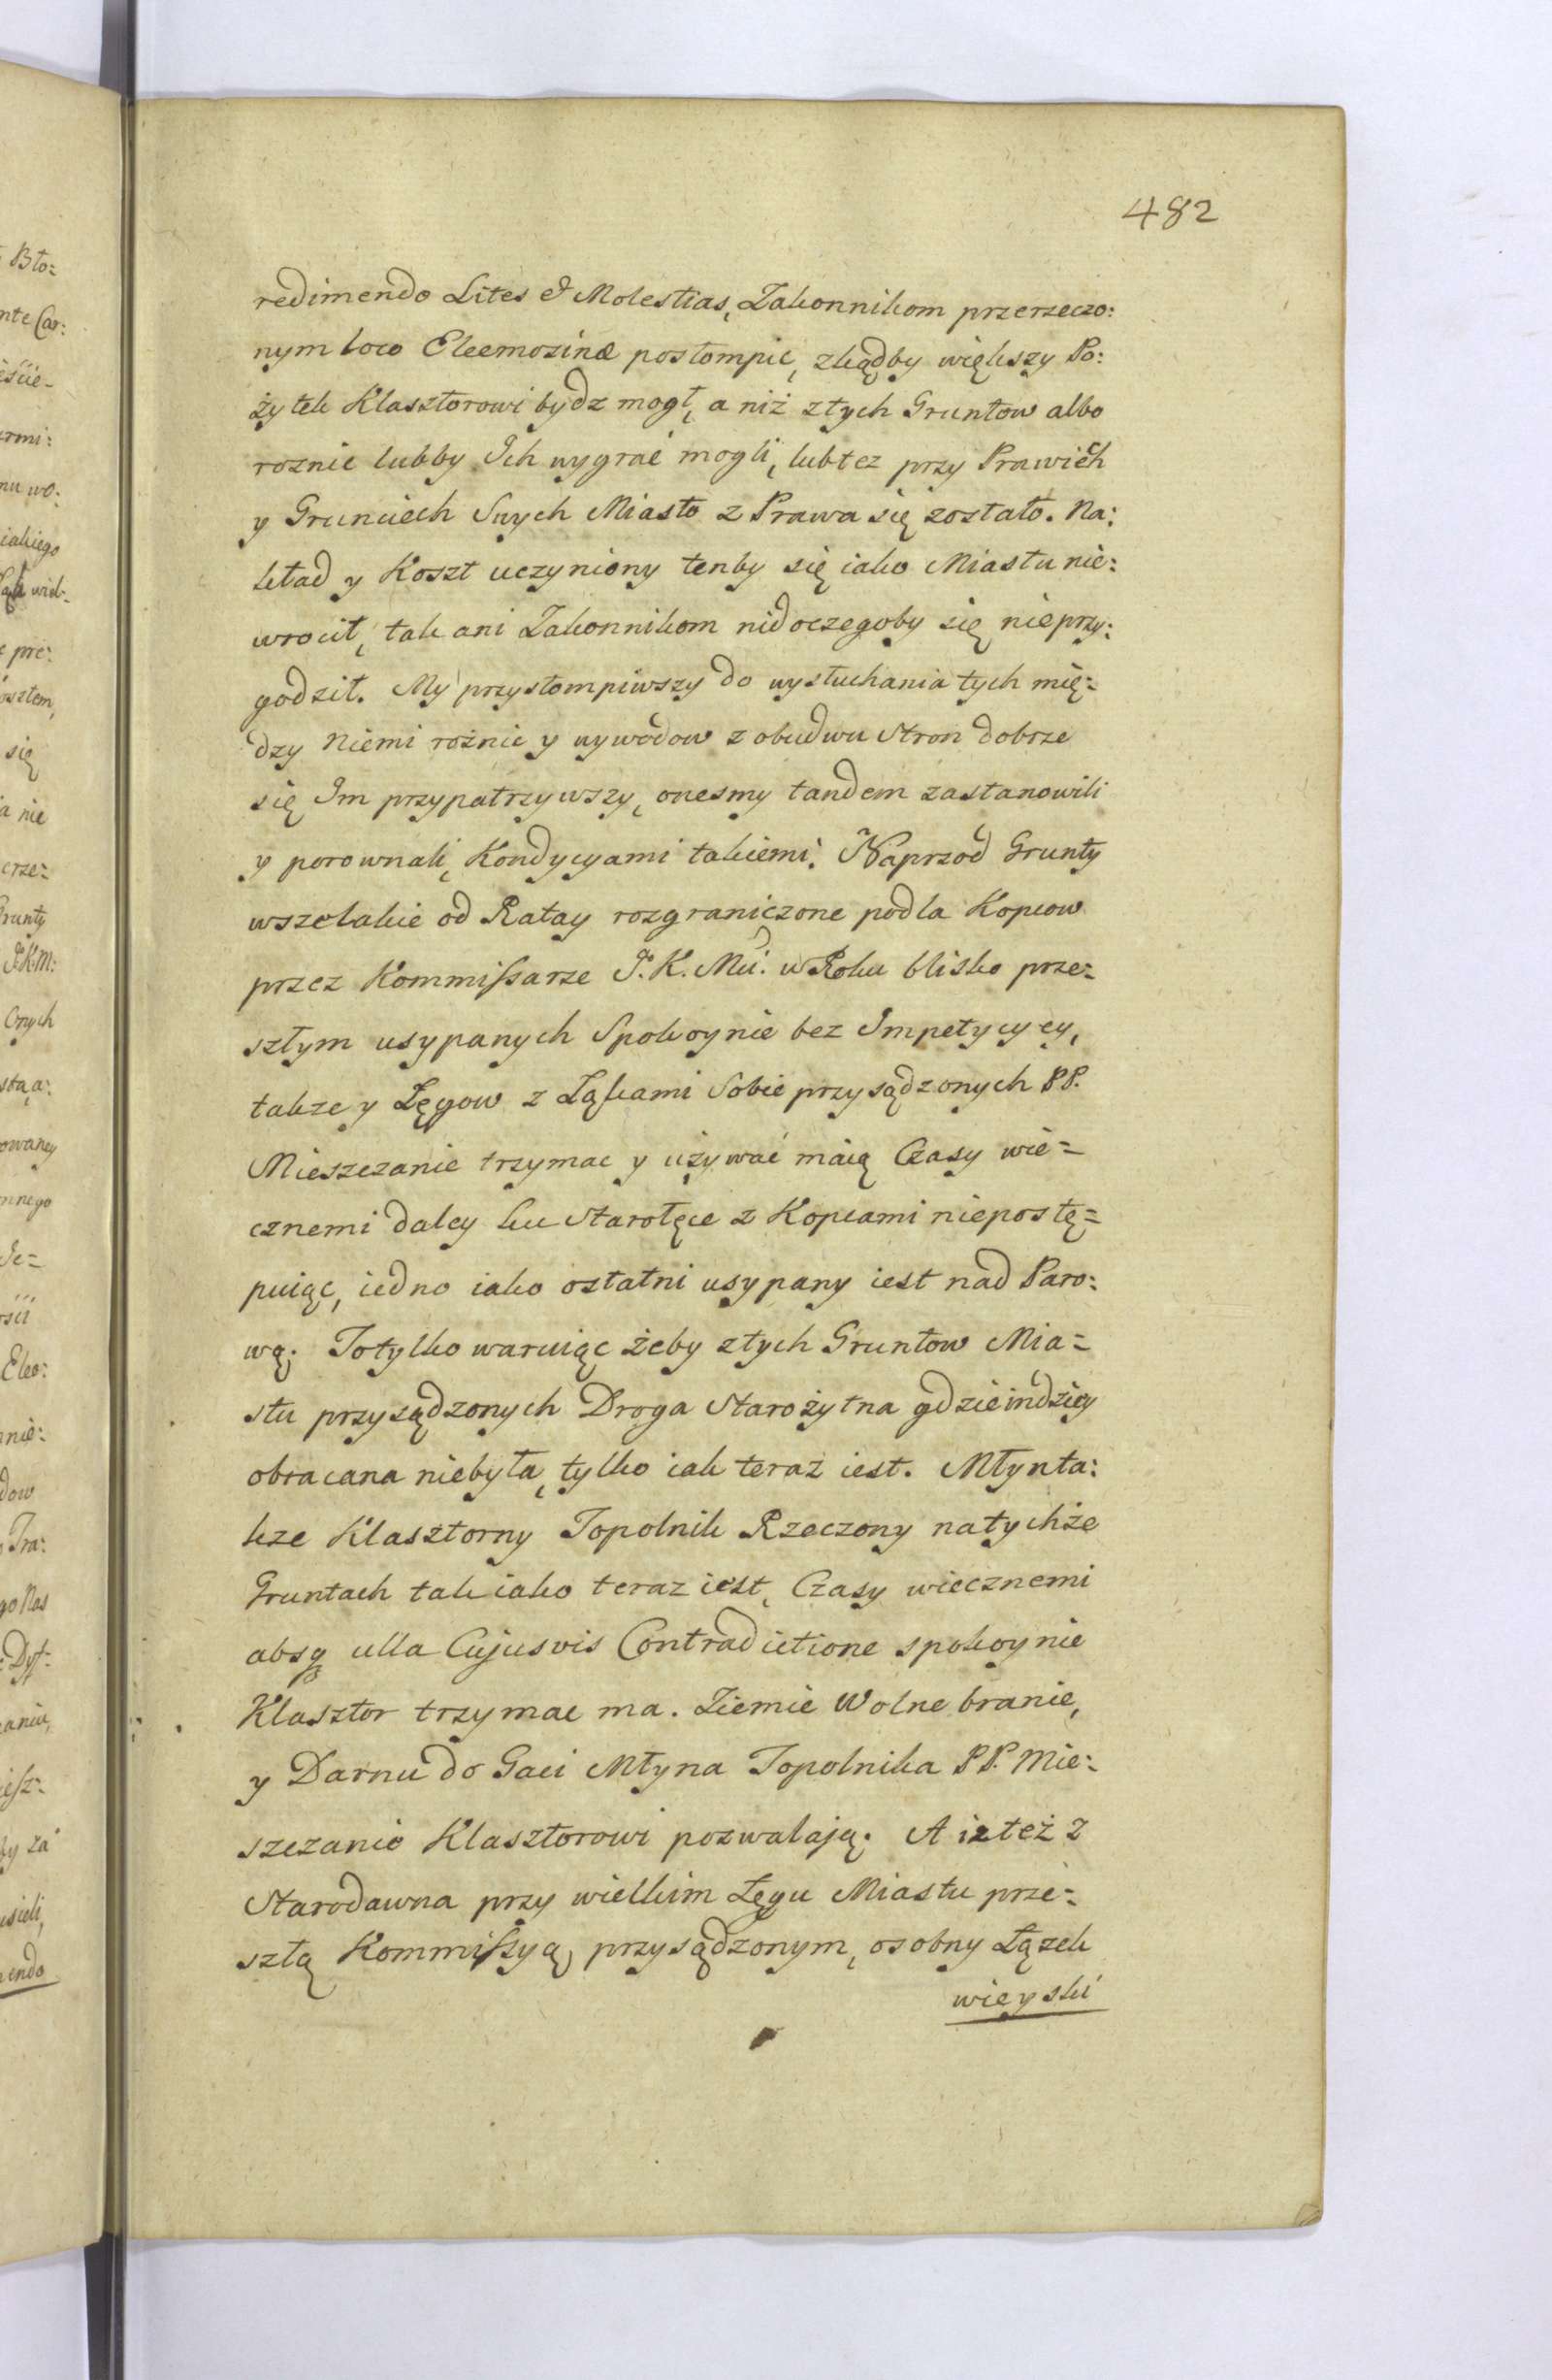 482
redimendo Lites & Molestias, Zakonnikom przerzeczo:
nym loco Eleemozinæ postompic, zkądby większy Po:
żytek Klasztorowi bydz mogł, a niż ztych Gruntow albo
roznie lubby Ich wygrać mogli, lubtez przy Prawiech
y Grunciech Swych Miasto z Prawa się zostało. Na:
kład y Koszt uczyniony tenby się iako Miastu nie:
wrocił, tak ani Zakonnikom nidoczegoby się nieprzy:
godził. My przystompiwszy do wysłuchania tych mię=
dzy Niemi rożnic y wywodow z obudwu Stron dobrze
się Im przypatrzywszy, onesmy tandem zastanowili
y porownali, Kondycyami takiemi. Naprzod Grunty
wszelakie od Ratay rozgraniczone podla Kopcow
przez Kommissarze J. K. Mci. w Roku blisko prze=
szłym usypanych Spokoynie bez Impetycyey,
takze y Łęgow z Ląkami Sobie przysądzonych PP.
Mieszczanie trzymac y używać maią Czasy wie=
cznemi daley ku Starołęce z Kopcami niepostę=
puiąc, iedno iako ostatni usypany iest nad Paro:
wą. Totylko waruiąc żeby ztych Gruntow Mia=
stu przysądzonych Droga Starożytna gdzieindziey
obracana niebyła, tylko iak teraz iest. Młynta:
kze Klasztorny Topolnik Rzeczony natychże
Gruntach tak iako teraz iest, Czasy wiecznemi
absq ulla Cujusvis Contradictione spokoynie
Klasztor trzymac ma. Ziemie Wolne branie,
y Darnu do Gaci Młyna Topolnika PP. Mie:
szczanie Klasztorowi pozwalają. A iz też z
Starodawna przy wielkim Łęgu Miastu prze=
szłą Kommissyą przysądzonym, osobny Łązek
wieyski